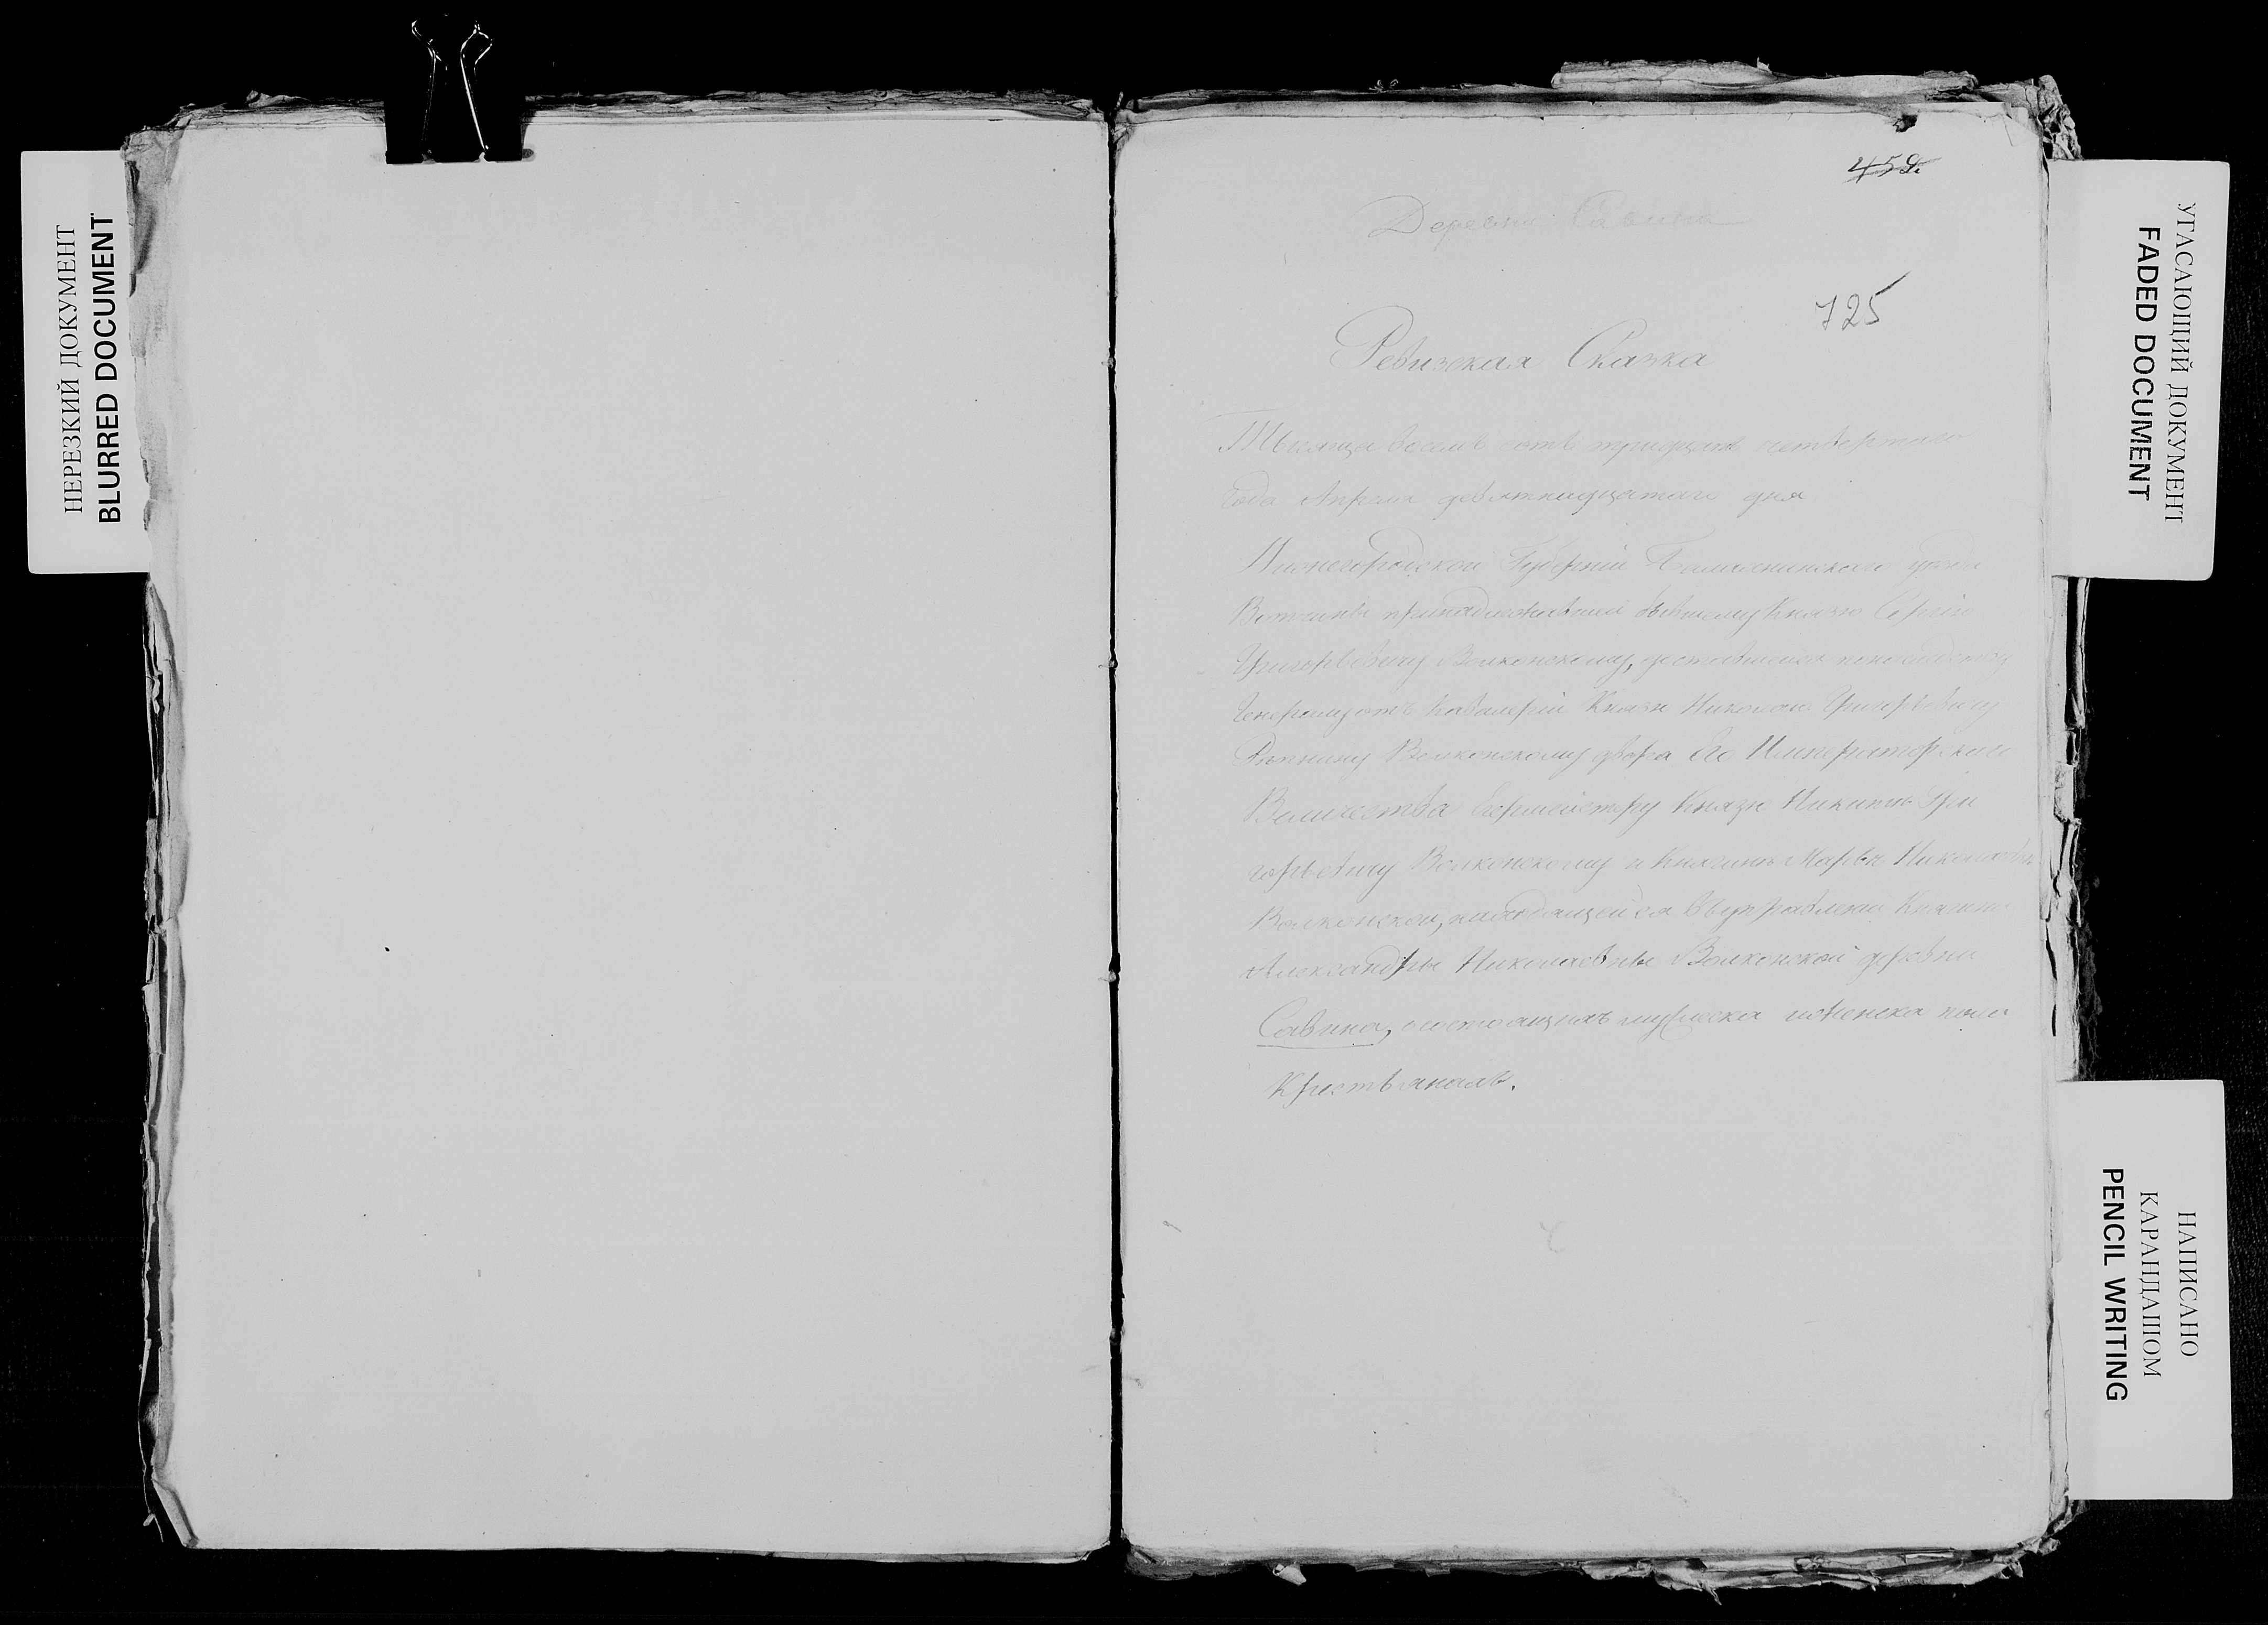 НЕРЕЗКИЙ ДОКУМЕНТ
BLURRED DOCUMENT
459.
Деревня Савина
725
Ревизская Сказка
Тысяща восемь сотъ тридцать четвертаго
года Апреля девятнадцатаго дня
Нижегородской Губерніи Балахнинскаго уезда
Вотчины принадлежавшей бывшему Князю Сергею
Григорьевичу Волконскому, доставшейся
Генералу отъ Кавалеріи Князю Николаю Григорьевичу
Репнину Волконскому двора Его Императорскаго
Величества Егермейстру Князю Никите Гри
горьевичу Волконскому и Княгине Марье Николаевне
Волконской, находящейся въ управлении Княгини
Александры Николаевны Волконской деревни
Савина, о состоящихъ мужеска и женска пола
Крестьянахъ.
УГАСАЮЩИЙ ДОКУМЕНТ
FADED DOCUMENT
НАПИСАНО
КАРАНДАШОМ
PENCIL WRITING